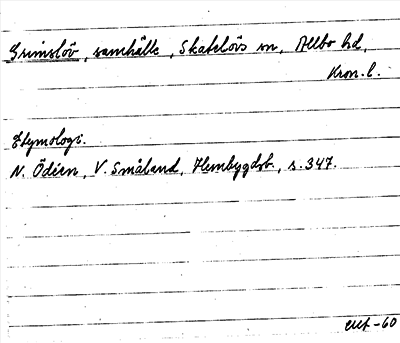 Grimslöv, samhälle, Skatelövs sn, Allbo hd,
Kron. l.
Etymologi.
N. Ödéen, V. Småland, Hembygdsb., s. 347.
-60